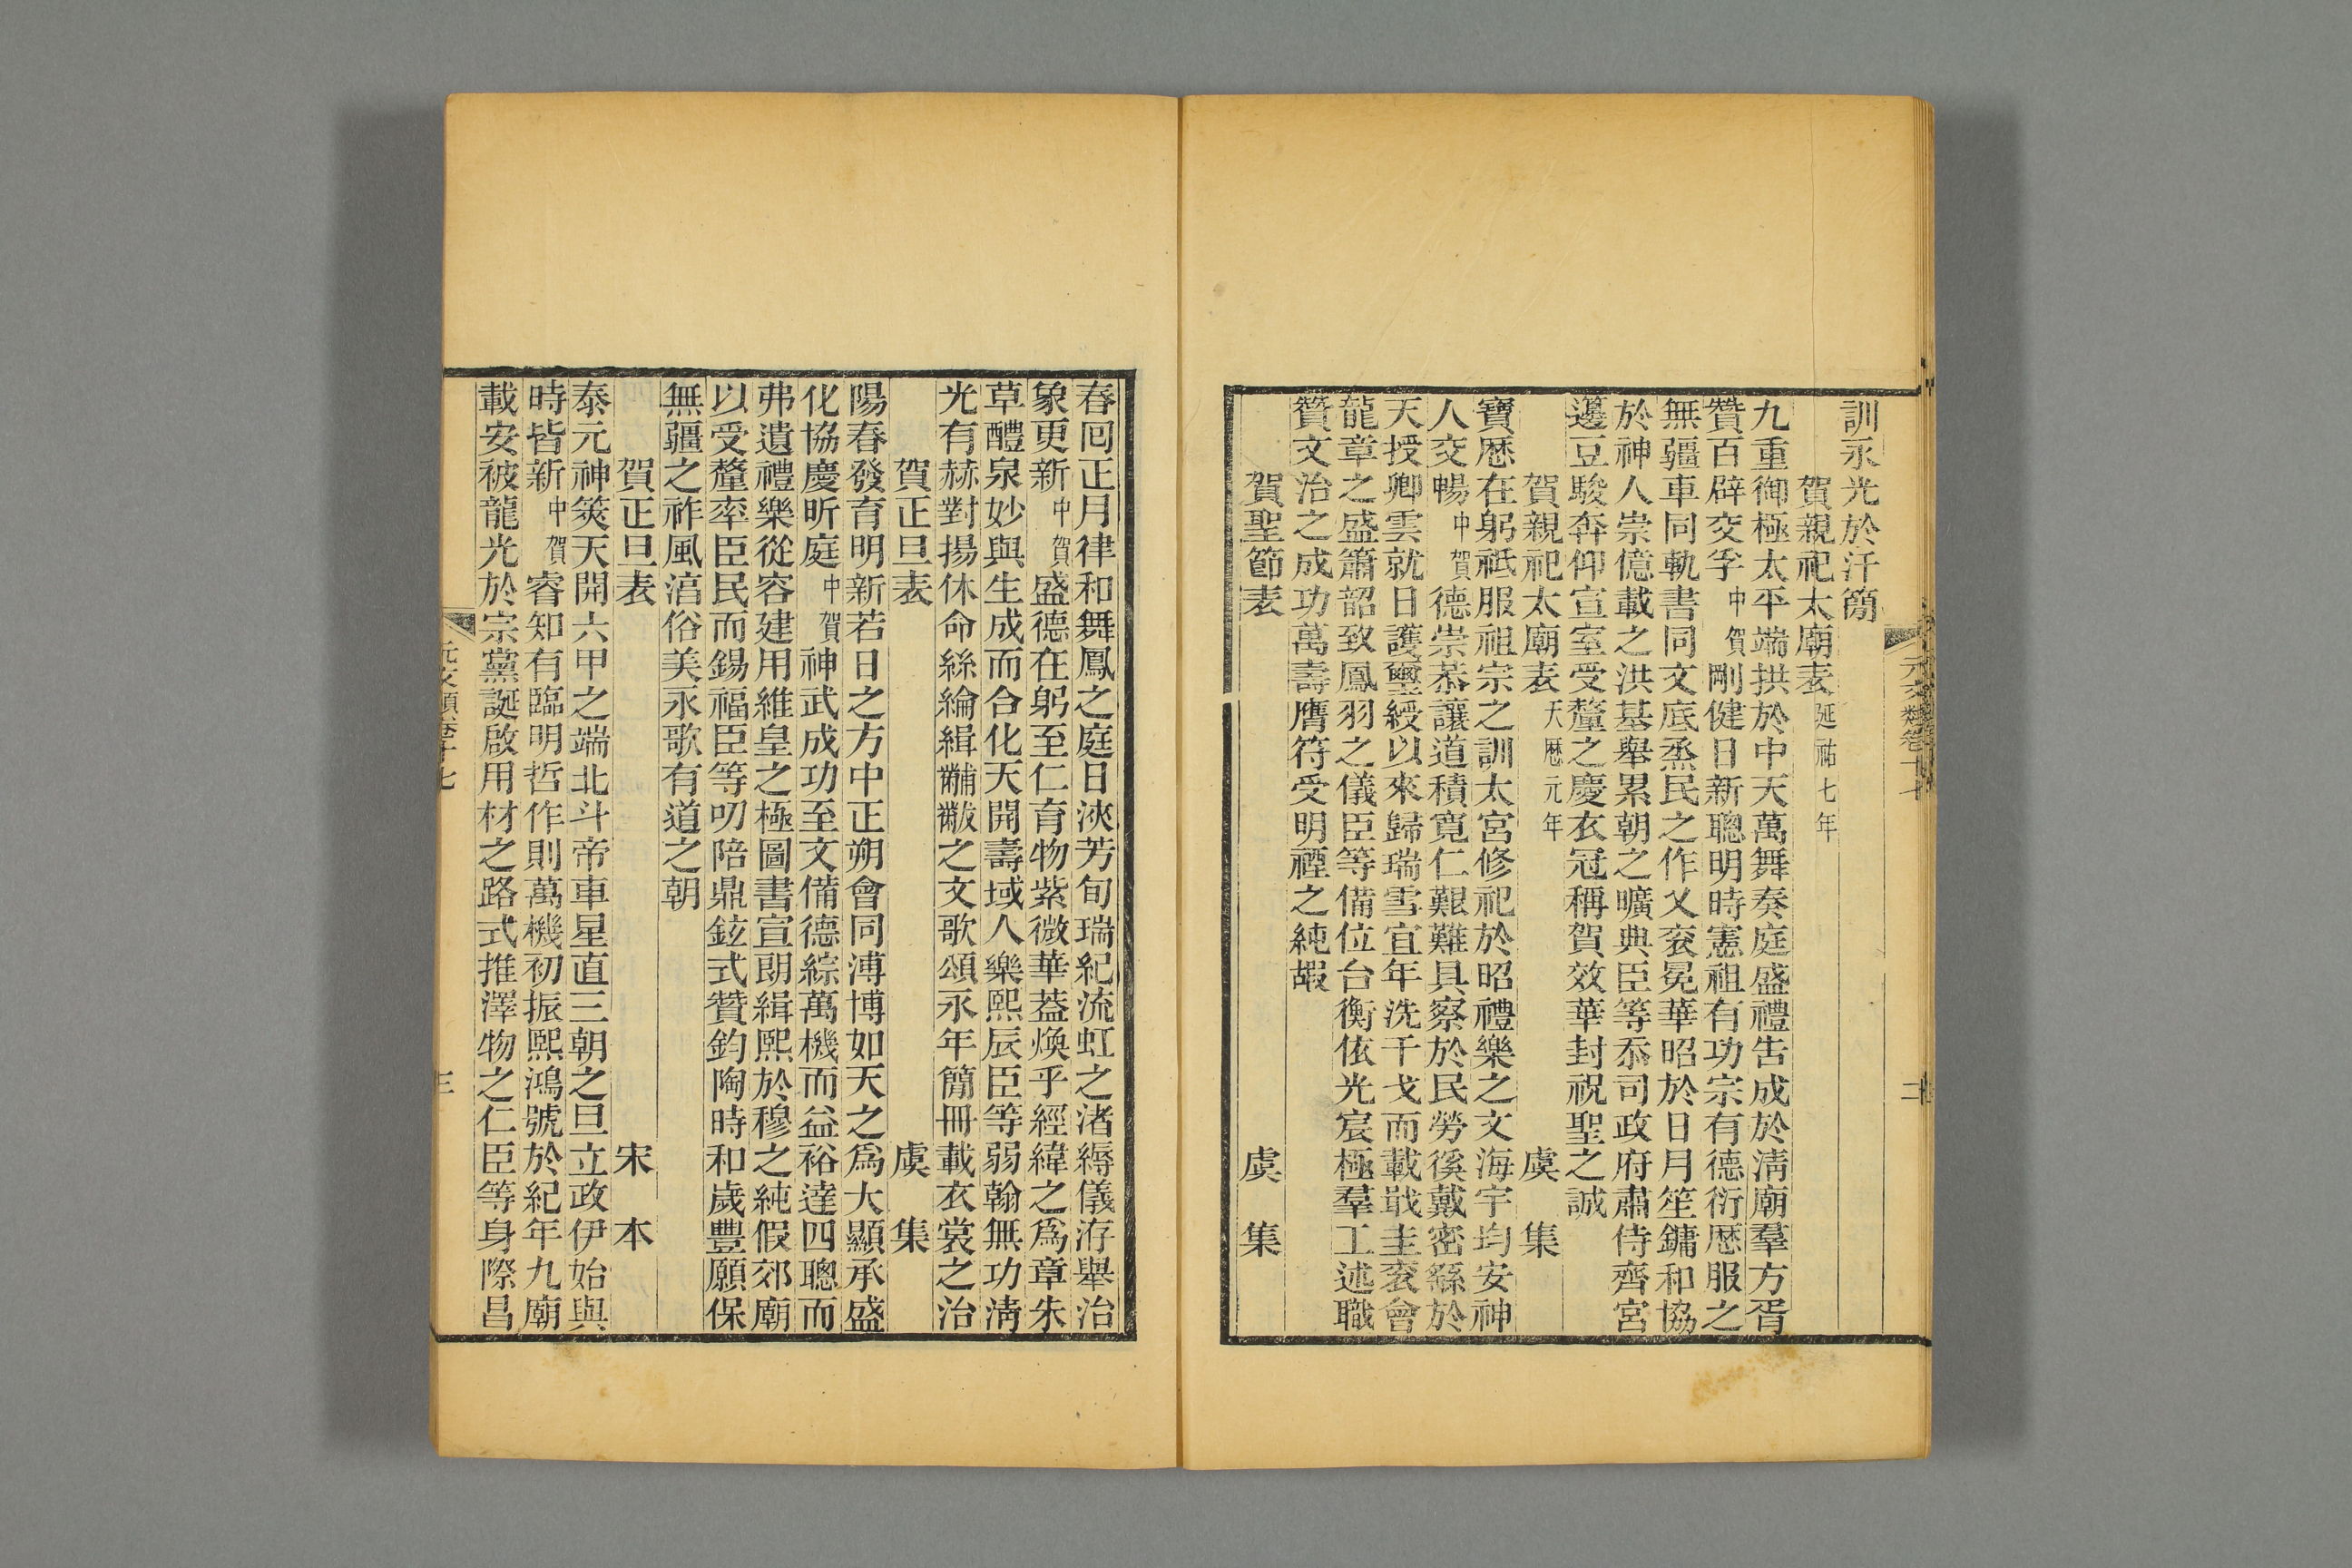 訓永光於汗簡
賀親祀太廟表 延祐七年
九重御極太平端拱於中天萬舞奏庭盛禮告成於淸廟羣方胥
贊百辟交孚 中賀 剛健日新聰明時憲祖有功宗有德衍歴服之
無疆車同軌書同文底烝民之作乂衮冕華昭於日月笙鏞和協
於神人崇億載之洪基舉累朝之曠典臣等忝司政府肅侍齊宮
籩豆駿奔仰宣室受釐之慶衣冠稱賀效華封祝聖之誠
賀親祀太廟表 天歴元年 虞集
寶歴在躬祗服祖宗之訓太宮修祀於昭禮樂之文海宇均安神
人交暢 中賀 德崇恭讓道積寛仁艱難具察於民勞徯戴密繇於
天授卿雲就日護璽綬以來歸瑞雪宜年洗干戈而載戢圭衮會
龍章之盛簫韶致鳳羽之儀臣等備位台衡依光宸極羣工述職
贊文治之成功萬壽膺符受明禋之純嘏
賀聖節表 虞集
元文類卷十七
二
春回正月律和舞鳳之庭日浹芳旬瑞紀流虹之渚縟儀洊舉治
象更新 中賀 盛德在躬至仁育物紫微華蓋煥乎經緯之爲章朱
草醴泉妙與生成而合化天開壽域人樂熙辰臣等弱翰無功淸
光有赫對揚休命絲綸緝黼黻之文歌頌永年簡冊載衣裳之治
賀正旦表 虞集
陽春發育明新若日之方中正朔會同溥博如天之爲大顯承盛
化協慶昕庭 中賀 神武成功至文備德綜萬機而益裕達四聰而
弗遺禮樂從容建用維皇之極圖書宣朗緝熙於穆之純假郊廟
以受釐率臣民而錫福臣等叨陪鼎鉉式贊鈞陶時和歲豐願保
無疆之祚風淳俗美永歌有道之朝
賀正旦表 宋本
泰元神筴天開六甲之端北斗帝車星直三朝之旦立政伊始與
時皆新 中賀 睿知有臨明哲作則萬機初振熙鴻號於紀年九廟
載安被龍光於宗黨誕啟用材之路式推澤物之仁臣等身際昌
元文類卷十七
三